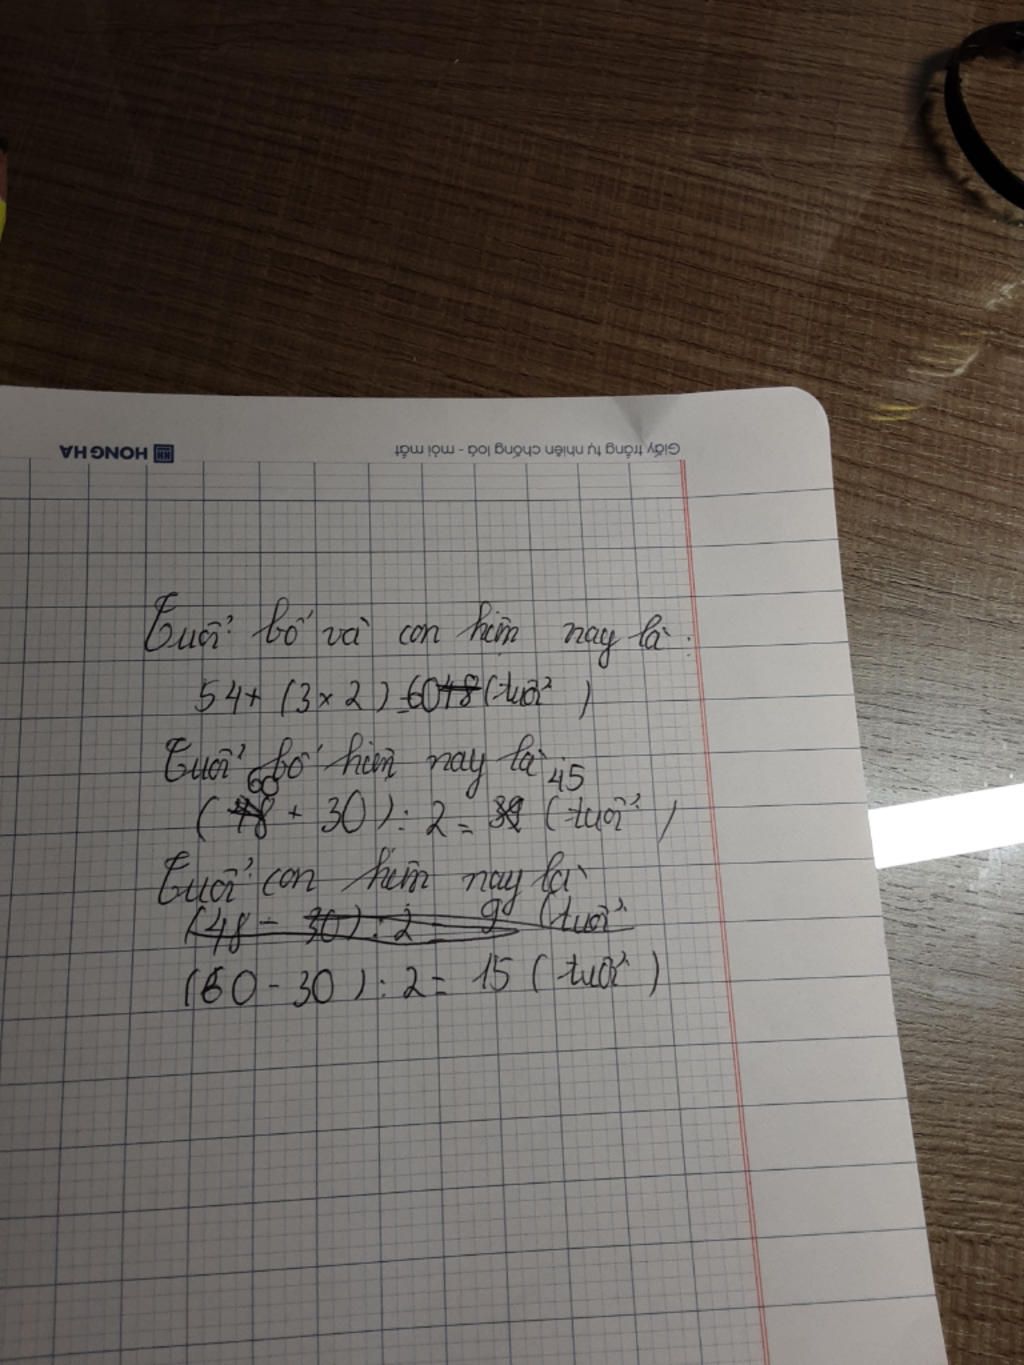 HONG HA
Giấy trắng tự nhiên chống loá - mỏi mắt
Tuổi bố và con hiện nay là:
54 + (3 x 2) = 60 48 (tuổi)
Tuổi bố hiện nay là
60 45
(48 + 30) : 2 = 39 (tuổi)
Tuổi con hiện nay là
(48 - 30) : 2 = 9 (tuổi
(60 - 30) : 2 = 15 (tuổi)